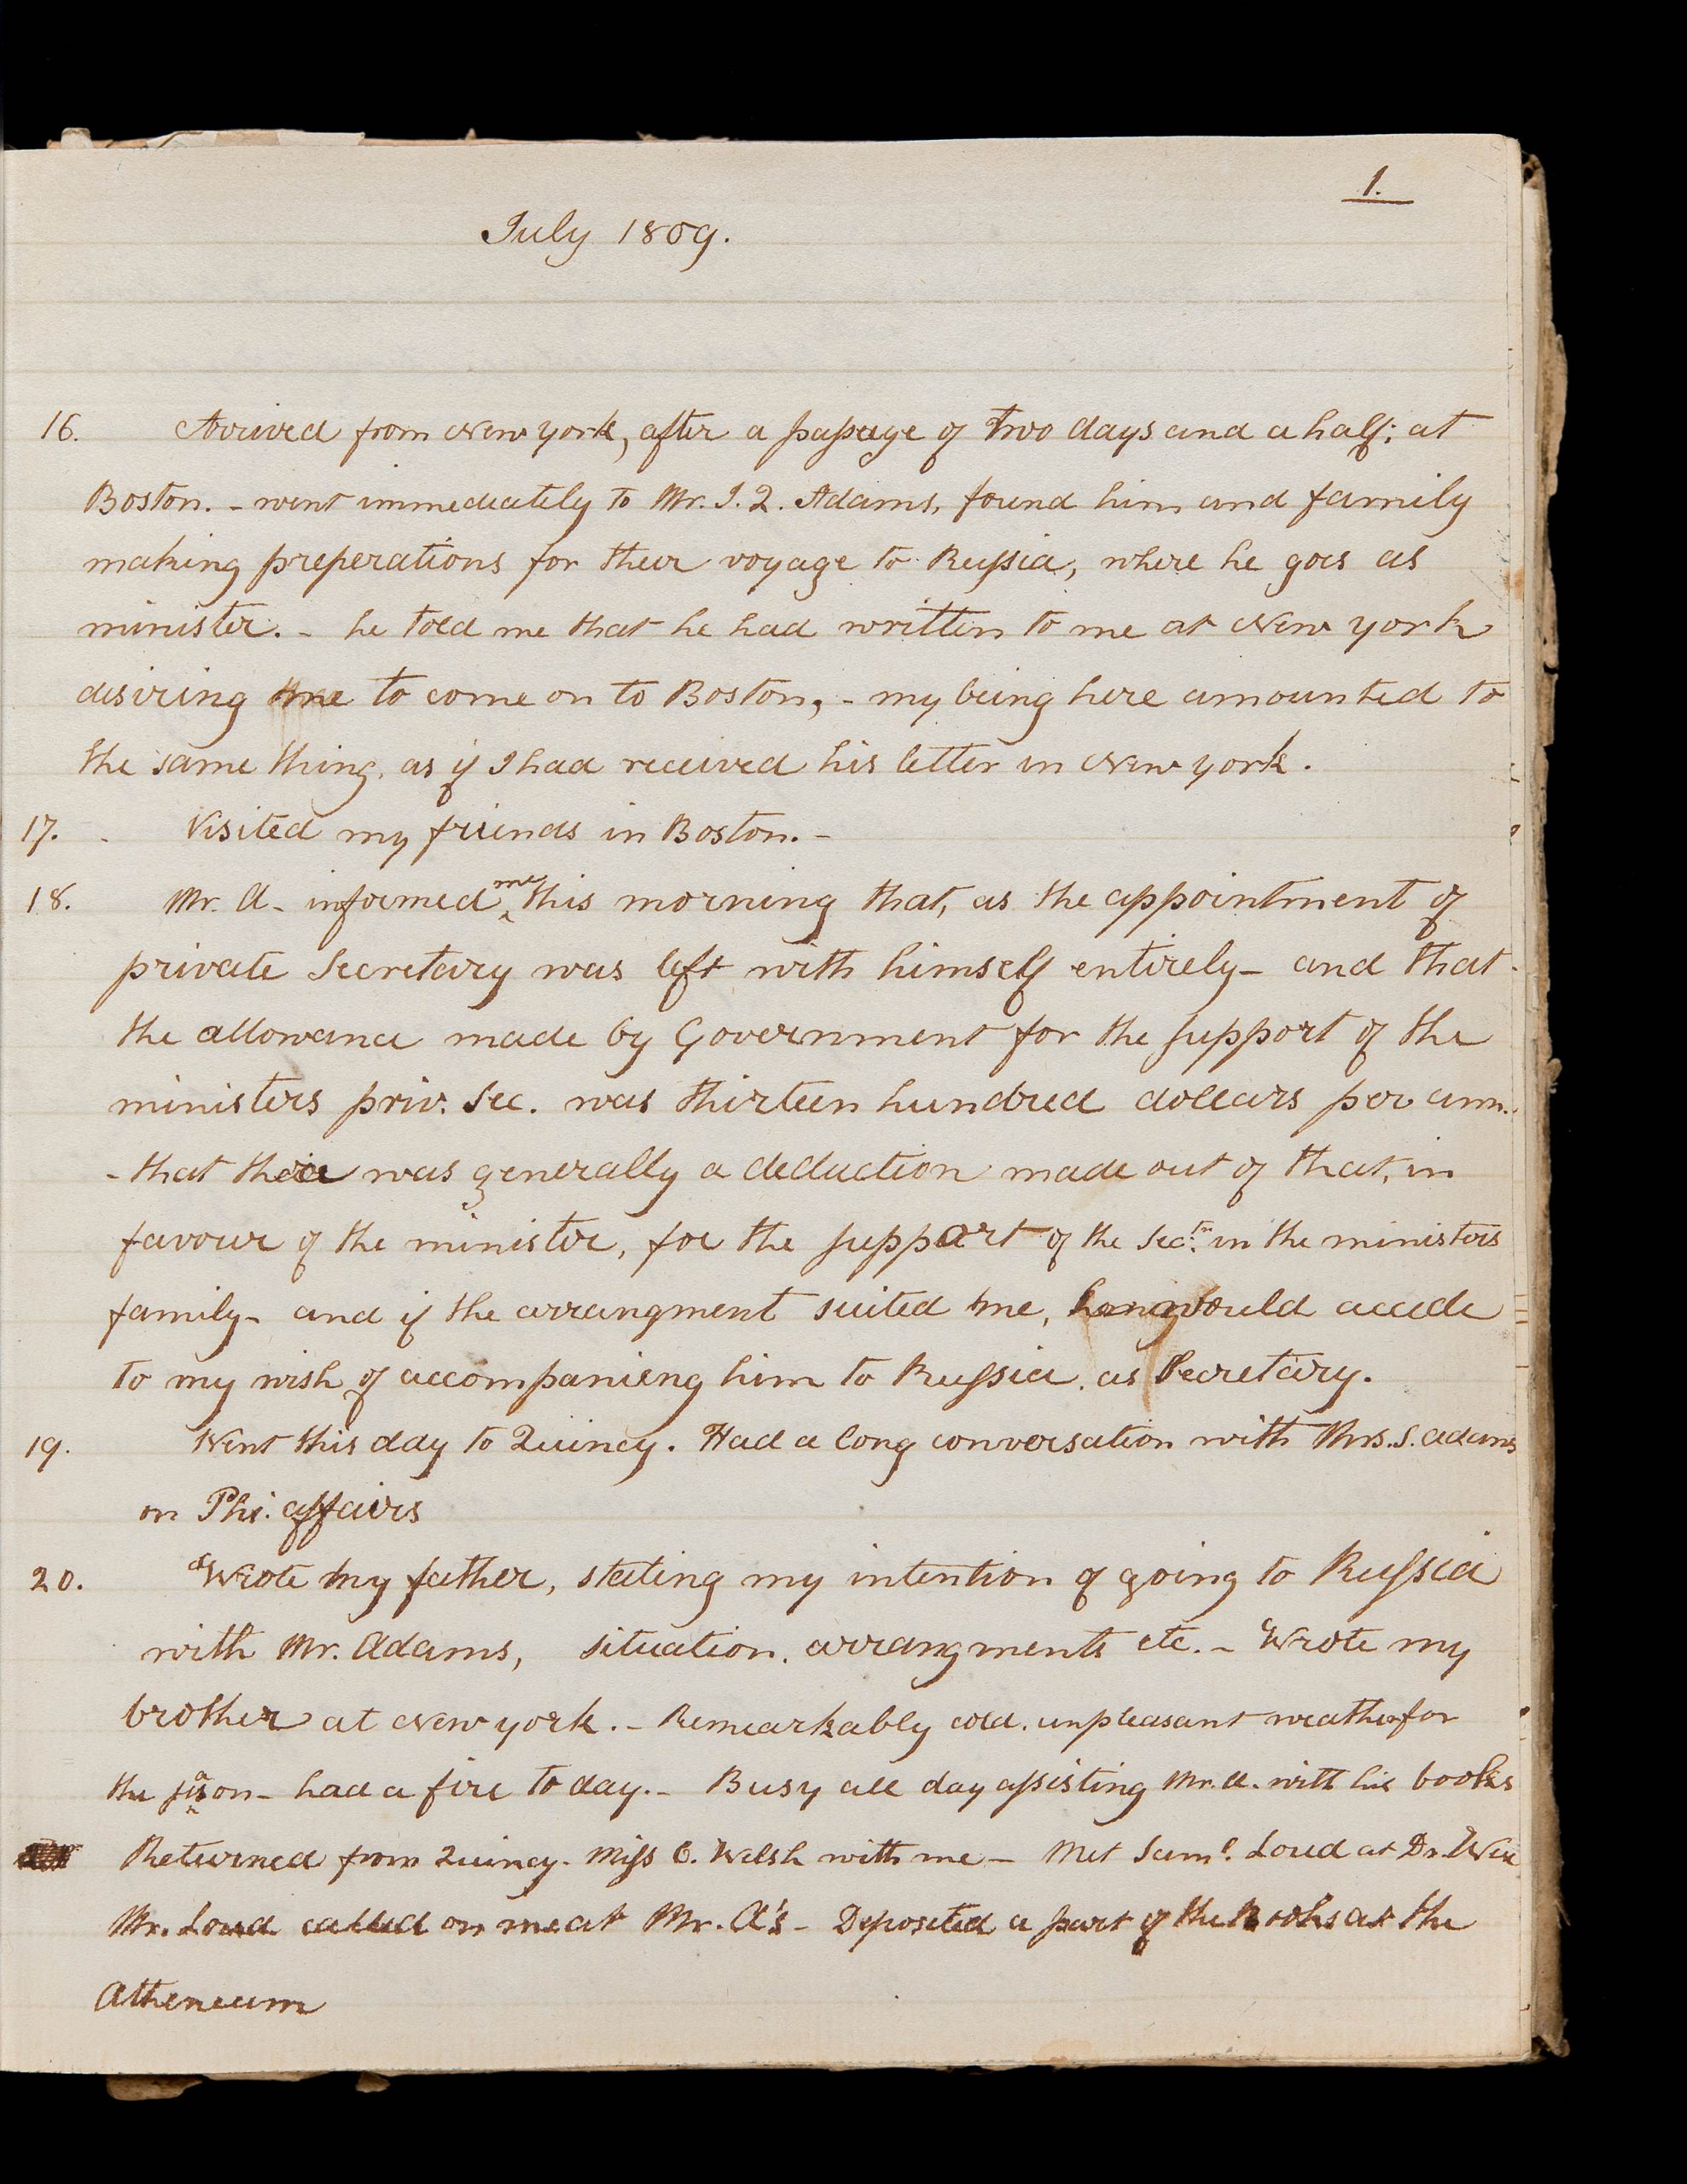 1.
July 1809.
16. Arrived from New York, after a passage of two days and a half; at
Boston. - went immediately to Mr. J. Q. Adams, found him and family
making preperations for their voyage to Russia, where he goes as
minister. - he told me that he had written to me at New York
desiring me to come on to Boston, - my being here amounted to
the same thing, as if I had received his letter in New York.
17. Visited my friends in Boston. -
18. Mr. A - informed me this morning that, as the appointment of
private Secretary was left with himself entirely - and that
the allowance made by Government for the support of the
ministers priv. Sec. was thirteen hundred dollars per ann.
- that there was generally a deduction made out of that, in
favour of the minister, for the support of the Sec. in the ministers
family - and if the arrangment suited me, would accede
to my wish of accompanieng him to Russia, as Secretary.
19. Went this day to Quincy. Had a long conversation with Mrs. S. Adams
on Phi. affairs
20. Wrote my father, stating my intention of going to Russia
with Mr. Adams, situation, arrangments etc. - Wrote my
brother at New York. - Remarkably cold, unpleasant weather for
the season - had a fire today. - Busy all day assisting Mr. A. with his books
Returned from Quincy. Miss C. Welsh with me - Met Saml. Loud at Dr.
Mr. Loud called on me at Mr. A's - Deposited a part of the Books at the
Atheneum